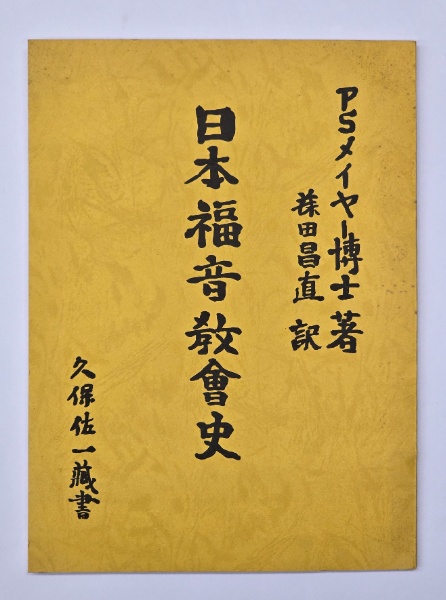 PSメイヤー博士著
篠田昌直 訳
日本福音教會史
久保佐一藏書